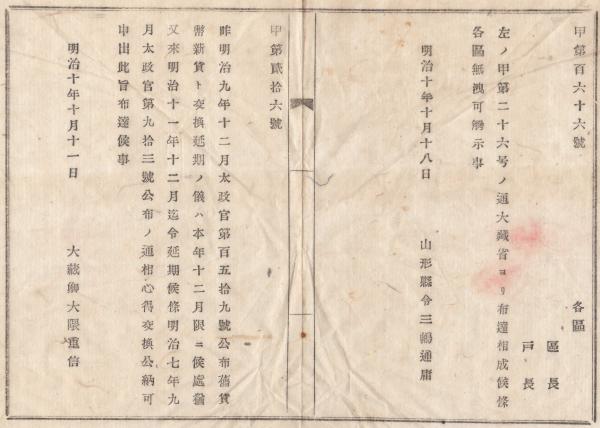 甲第百六十六號
各區
區長
戸長
左ノ甲第二十六号ノ通大藏省ヨリ布達相成候條
各區無洩可觸示事
明治十年十月十八日
山形縣令三嶋通庸
甲第貳拾六號
昨明治九年十二月太政官第百五拾九號公布舊貨
幣新貨ト交換延期ノ儀ハ本年十二月限ニ候處猶
又來明治十一年十二月迄令延期候條明治七年九
月太政官第九拾三號公布ノ通相心得交換公納可
申出此旨布達候事
明治十年十月十一日
大藏卿大隈重信